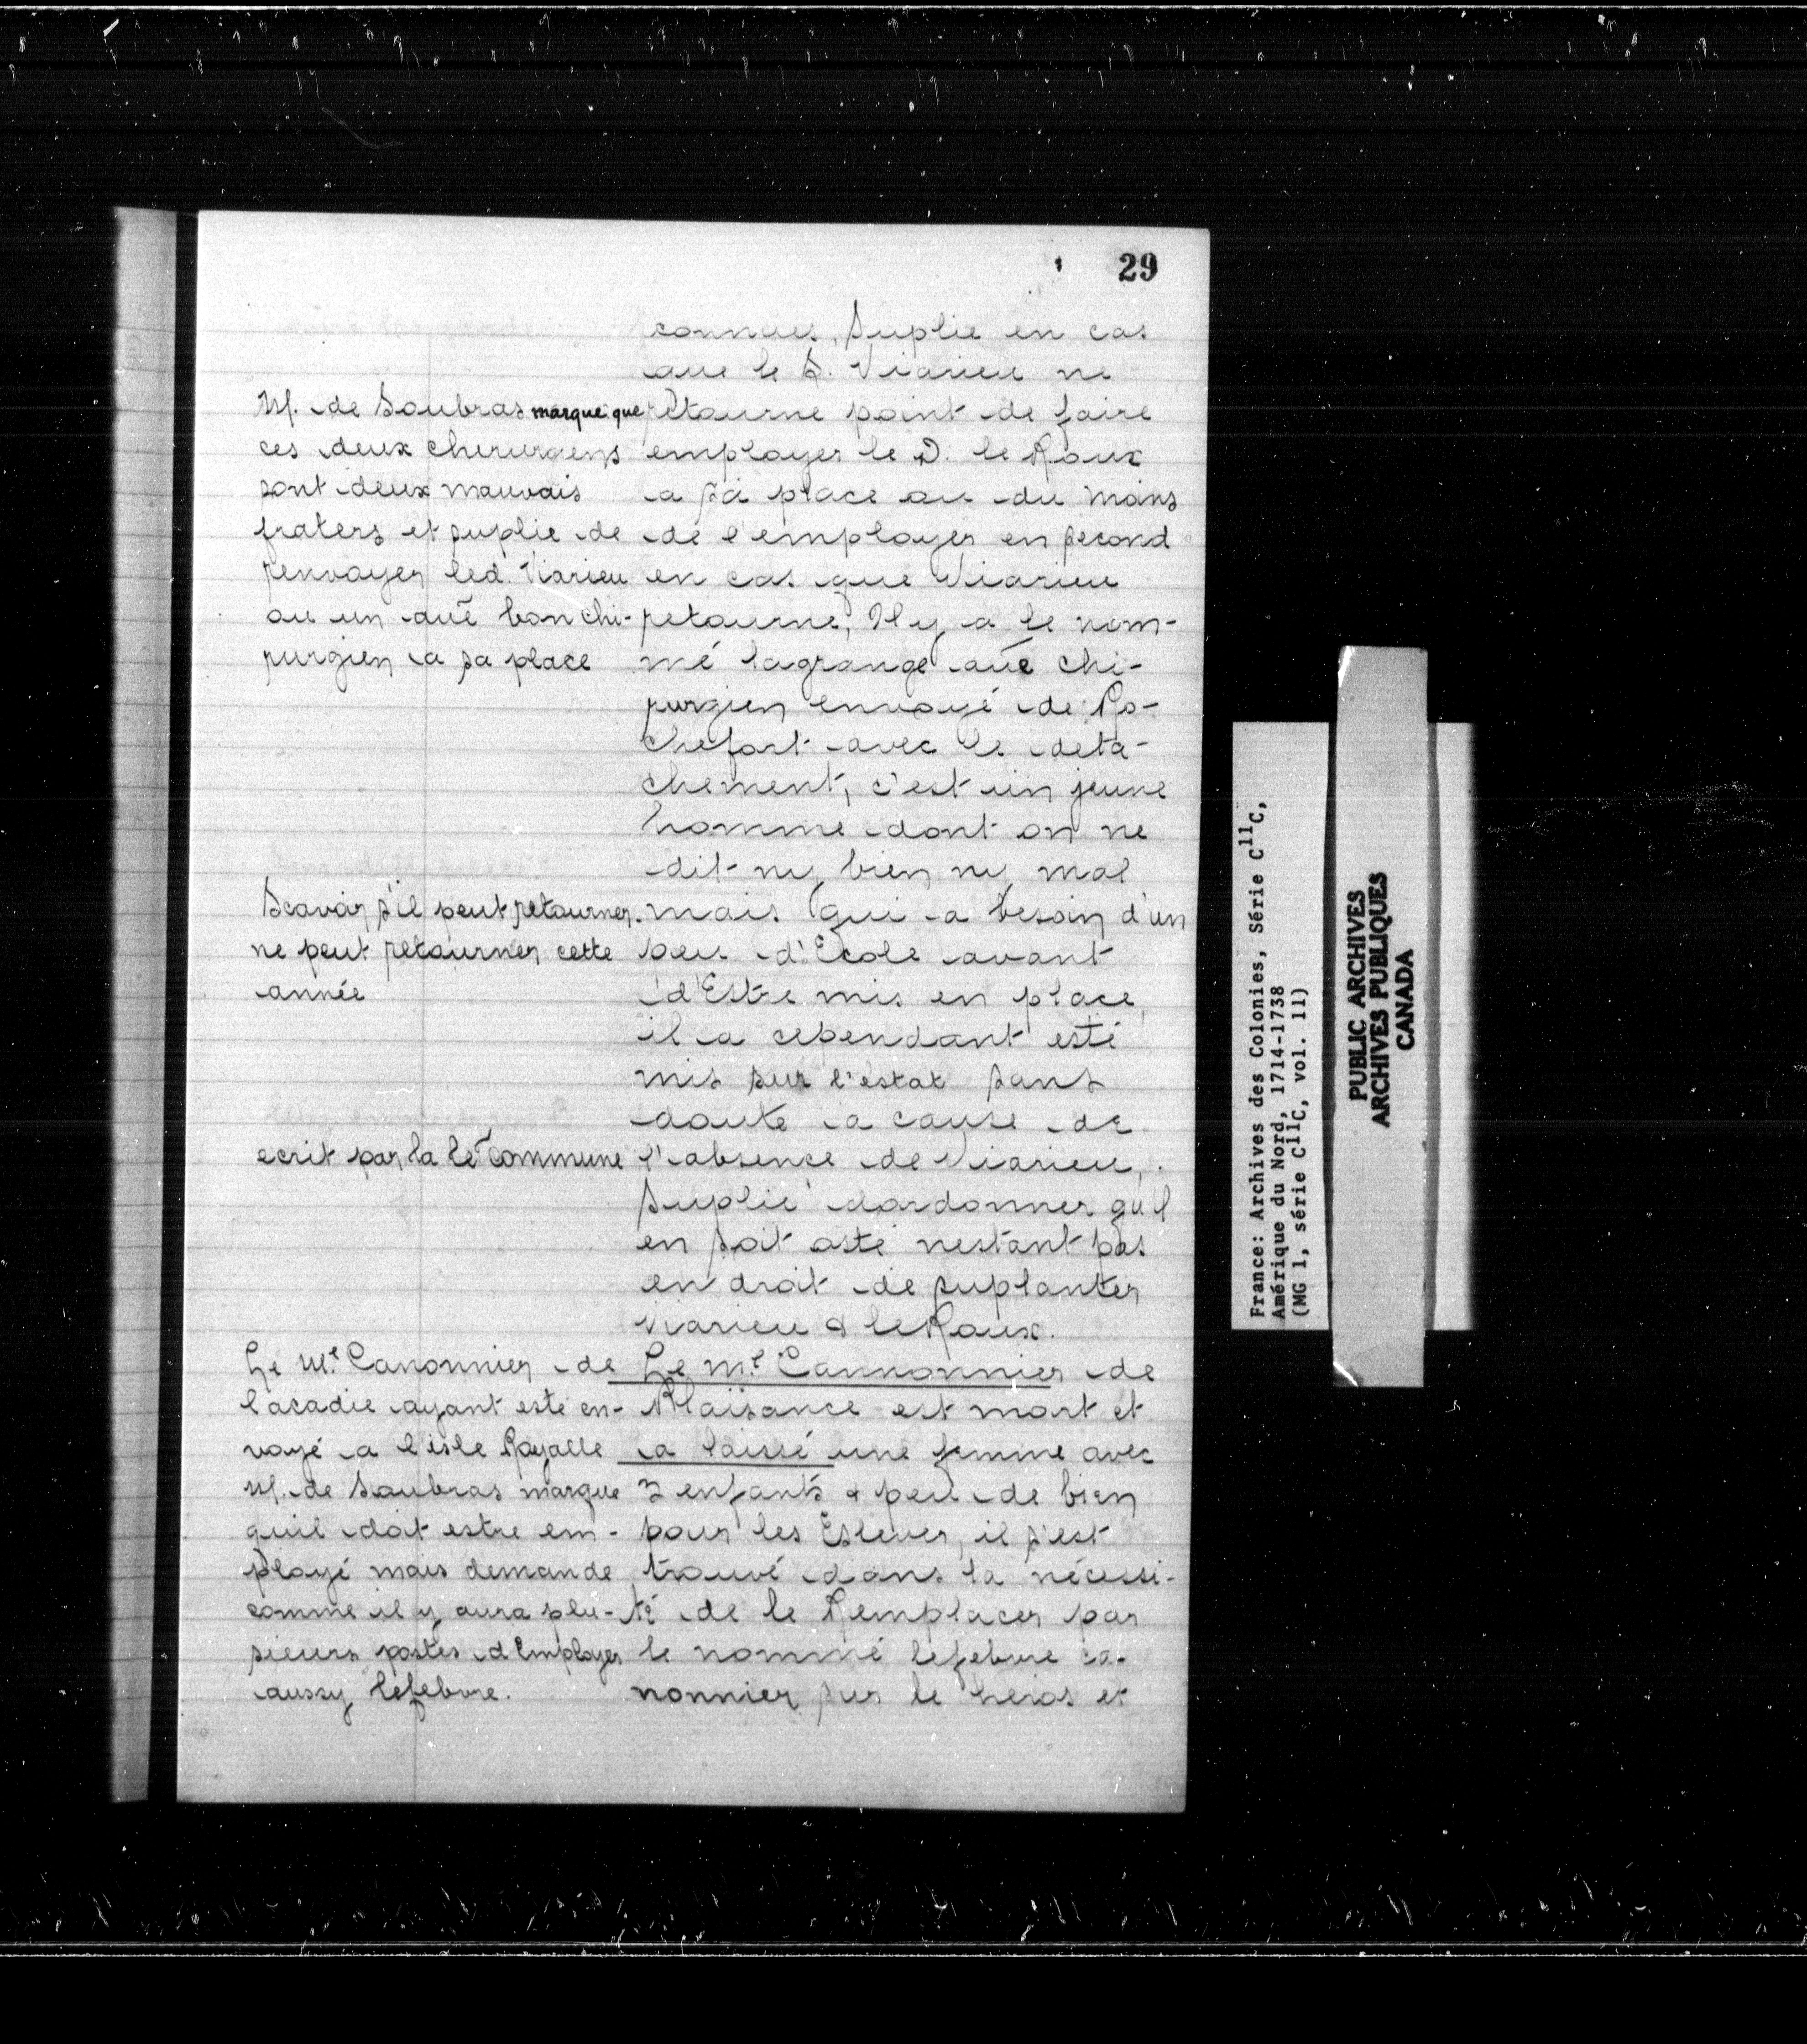 29
connues, Suplie en cas
que le S. Viarieu ne
retourne point de faire
employer le S. le Roux
a sa place ou du moins
de l'employer en second
en cas que Viarieu
retourne, Il y a le nom-
mé lagrange aũe chi-
rurgien envoyé de Ro-
chefort avec le deta-
chement, c'est un jeune
homme dont on ne
dit ny bien ny mal
mais qui a besoin d'un
peu d'École avant
d'Estre mis en place,
il a cependant esté
mis sur l'estat sans
doute a cause de
l'absence de Viarieu,
Suplie dordonner qu'il
en soit osté nestant pas
en droit de suplanter
Viarieu & le Roux.
Le Mᵉ Cannonnier de
Plaisance est mort et
a laissé une femme avec
3 enfants & peu de bien
pour les Eslever, il s'est
trouvé dans la nécessi-
té de le Remplacer par
le nommé lefebvre ca-
nonnier sur le heros et
M. de Soubras marque que
ces deux cherurgiens
sont deux mauvais
fraters et suplie de
renvoyer led. Viarieu
ou un aũe bon chi-
rurgien a sa place
Scavoir s'il peut retourner.
ne peut retourner cette
année
ecrit par la lẽ commune
Le Mᵉ Canonnier de
lacadie ayant esté en-
voyé a l'isle Royalle
M. de Soubras marque
quil doit estre em-
ployé mais demande
comme il y aura plu-
sieurs postes d'Employer
aussy lefebvre.
France: Archives des Colonies, Série C11C,
Amérique du Nord, 1714-1738
(MG 1, série C11C, vol. 11)
PUBLIC ARCHIVES
ARCHIVES PUBLIQUES
CANADA